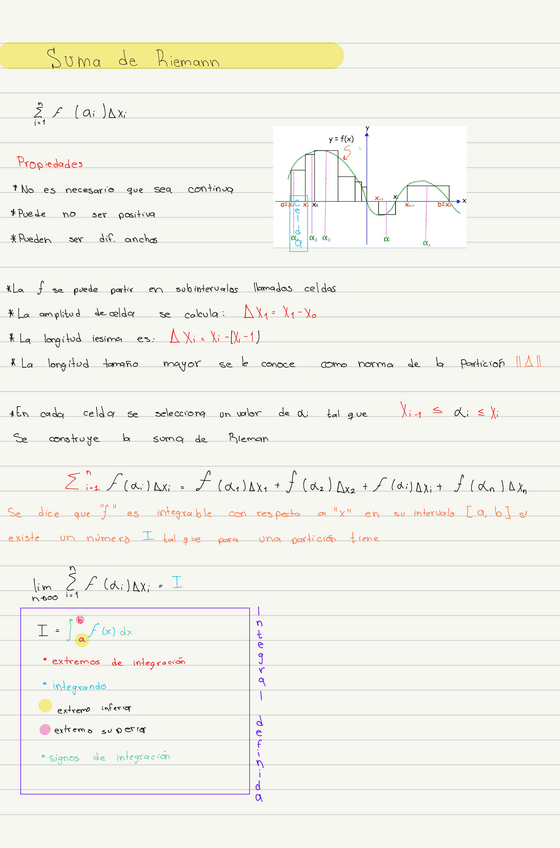 Suma de Riemann
n
Σ f (ai) Δxi
i=1
Propiedades
* No es necesario que sea continua
* Puede no ser positiva
* Pueden ser dif. anchos
y
y = f(x)
S
x
celda
α
* La f se puede partir en subintervalos llamados celdas
* La amplitud de celda se calcula: ΔX1 = X1 - X0
* La longitud iesima es: ΔXi = Xi - (Xi - 1)
* La longitud tamaño mayor se le conoce como norma de la partición ||Δ||
* En cada celda se selecciona un valor de αi tal que Xi-1 ≤ αi ≤ Xi
Se construye la suma de Rieman
Σ i=1 n f(αi) Δxi = f(α1) Δx1 + f(α2) Δx2 + f(αi) Δxi + f(αn) Δxn
Se dice que "f" es integrable con respecto a "x" en su intervalo [a, b] si
existe un número I tal que para una partición tiene
lim n→∞ Σ i=1 n f(αi) Δxi = I
I = ∫ a b f(x) dx
• extremos de integración
• integrando
extremo inferior
extremo superior
• signos de integración
Integral definida